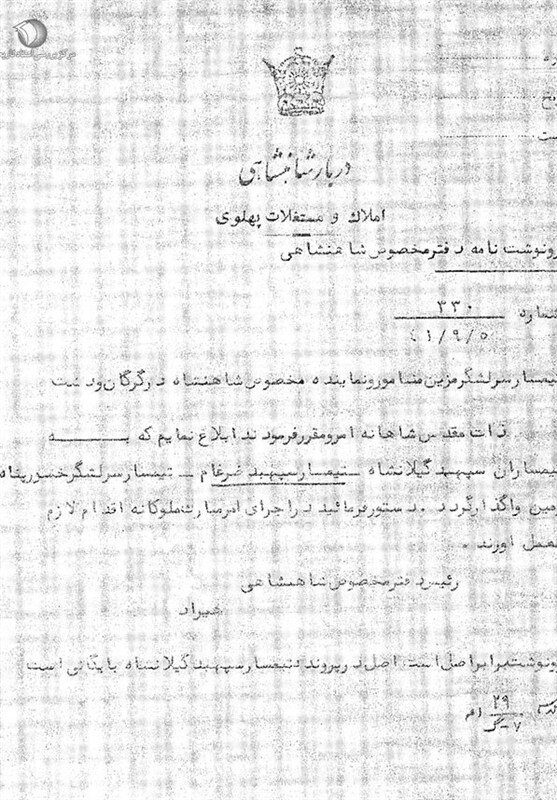 دربار شاهنشاهی
املاک و مستغلات پهلوی
رونوشت نامه دفتر مخصوص شاهنشاهی
شماره ۳۳۰
تیمسار سرلشگر مزین مامور و نماینده مخصوص شاهنشاه در گرگان و دشت
ذات مقدس شاهانه امر و مقرر فرمودند ابلاغ نمایم که به
تیمساران سپهبد گیلانشاه ــ تیمسار سپهبد ضرغام ــ تیمسار سرلشگر خسروپناه
زمین واگذار گردد . دستور فرمائید در اجرای امر مبارک ملوکانه اقدام لازم
بعمل آورند .
رئیس دفتر مخصوص شاهنشاهی
هیراد
رونوشت برابر اصل است اصل در پرونده تیمسار سپهبد گیلانشاه بایگانی است